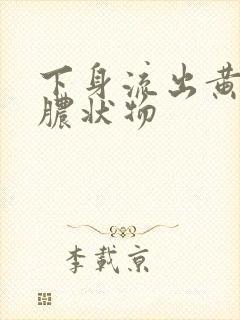 下身流出黄
脓状物
李載京